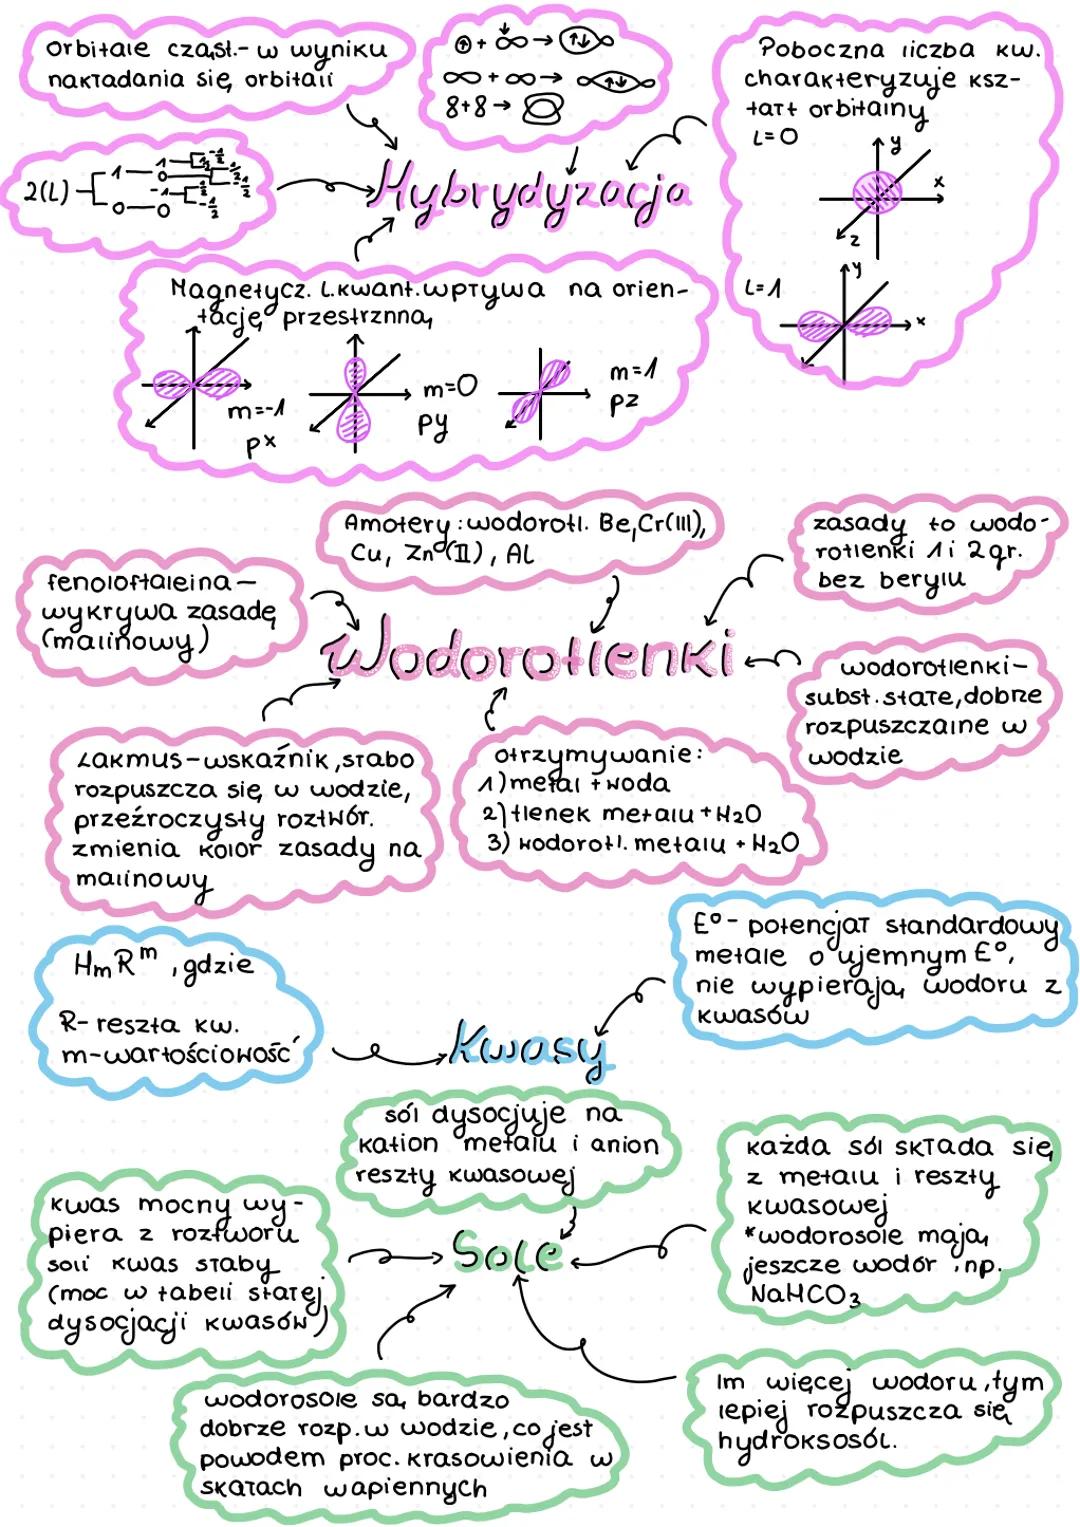 orbitale cząst.- w wyniku
nakładania się orbitali
8+8→
Poboczna liczba kw.
charakteryzuje ksz-
tałt orbitalny
L=0
y
x
z
L=1
y
x
2(L)
Hybrydyzacja
Magnetycz. L.kwant.wpływa na orien-
tację przestrznną
m=-1
px
m=0
py
m=1
pz
Amotery: wodorotl. Be, Cr(III),
Cu, Zn (II), AL
zasady to wodo-
rotlenki 1 i 2 gr.
bez berylu
fenoloftaleina-
wykrywa zasadę
(malinowy)
Wodorotlenki
wodorotlenki-
subst. stałe, dobrze
rozpuszczalne w
wodzie
Lakmus-wskaźnik, słabo
rozpuszcza się w wodzie,
przeźroczysty roztwór.
zmienia kolor zasady na
malinowy
otrzymywanie:
1) metal + woda
2) tlenek metalu + H2O
3) wodorotl. metalu + H2O
E°- potencjał standardowy
metale o ujemnym E°,
nie wypierają wodoru z
kwasów
HmR^m, gdzie
R- reszta kw.
m-wartościowość
Kwasy
sól dysocjuje na
kation metalu i anion
reszty kwasowej
każda sól składa się
z metalu i reszty
kwasowej
*wodorosole mają
jeszcze wodór, np.
NaHCO3
kwas mocny wy-
piera z roztworu
soli kwas słaby
(moc w tabeli stałej
dysocjacji kwasów)
Sole
wodorosole są bardzo
dobrze rozp. w wodzie, co jest
powodem proc. krasowienia w
skałach wapiennych
Im więcej wodoru, tym
lepiej rozpuszcza się
hydroksosól.